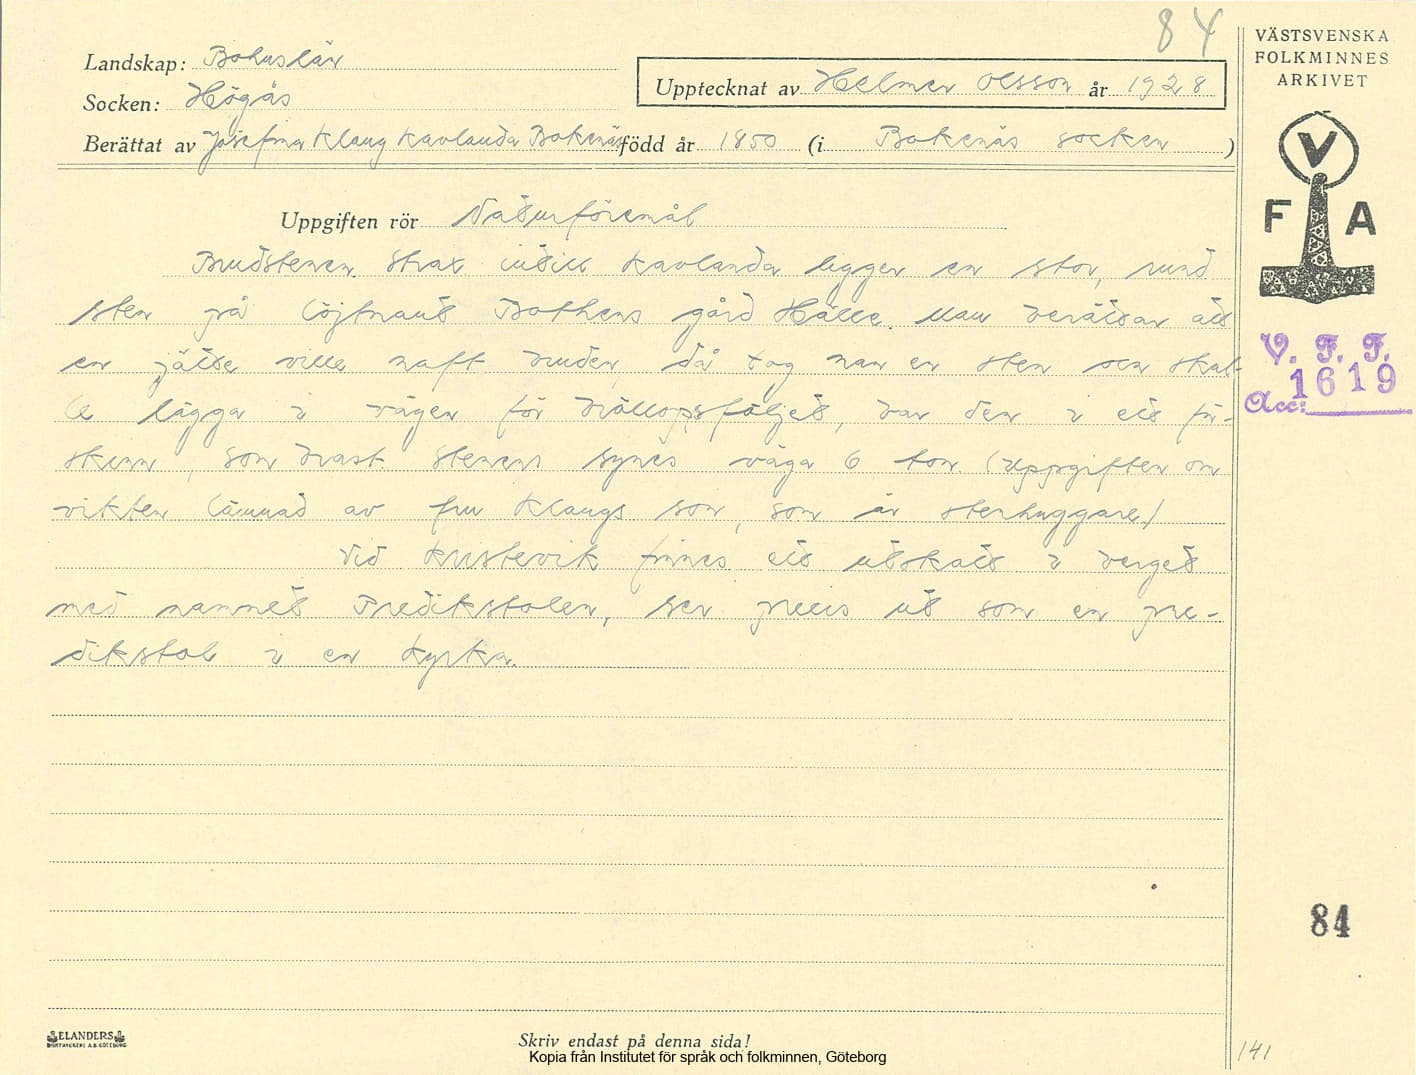 84
VÄSTSVENSKA
FOLKMINNES
ARKIVET
Landskap: Bohuslän
Socken: Högås
Upptecknat av Helmer Olsson år 1928
Berättat av Josefina Klang Kavlanda Bokenäs född år 1850 (i Bokenäs socken)
V
F A
Uppgiften rör Naturföremål
Brudstenen. Strax intill Kavlanda ligger en stor, rund
sten på löjtnant Bothens gård Hälle. Man berättar att
en jätte ville haft bruden, då tog han en sten och skul-
le lägga i vägen för bröllopsföljet, bar den i ett för-
skinn, som brast. Stenen synes väga 6 ton. (Uppgiften om
vikten lämnad av fru Klangs son, som är stenhuggare.)
Vid Kristevik finnes ett utskott i berget
med namnet Predikstolen, ser precis ut som en pre-
dikstol i en kyrka.
V. F. F.
Acc: 1619
84
ELANDERS
BOKTRYCKERI A.B. GÖTEBORG
Skriv endast på denna sida!
Kopia från Institutet för språk och folkminnen, Göteborg
141